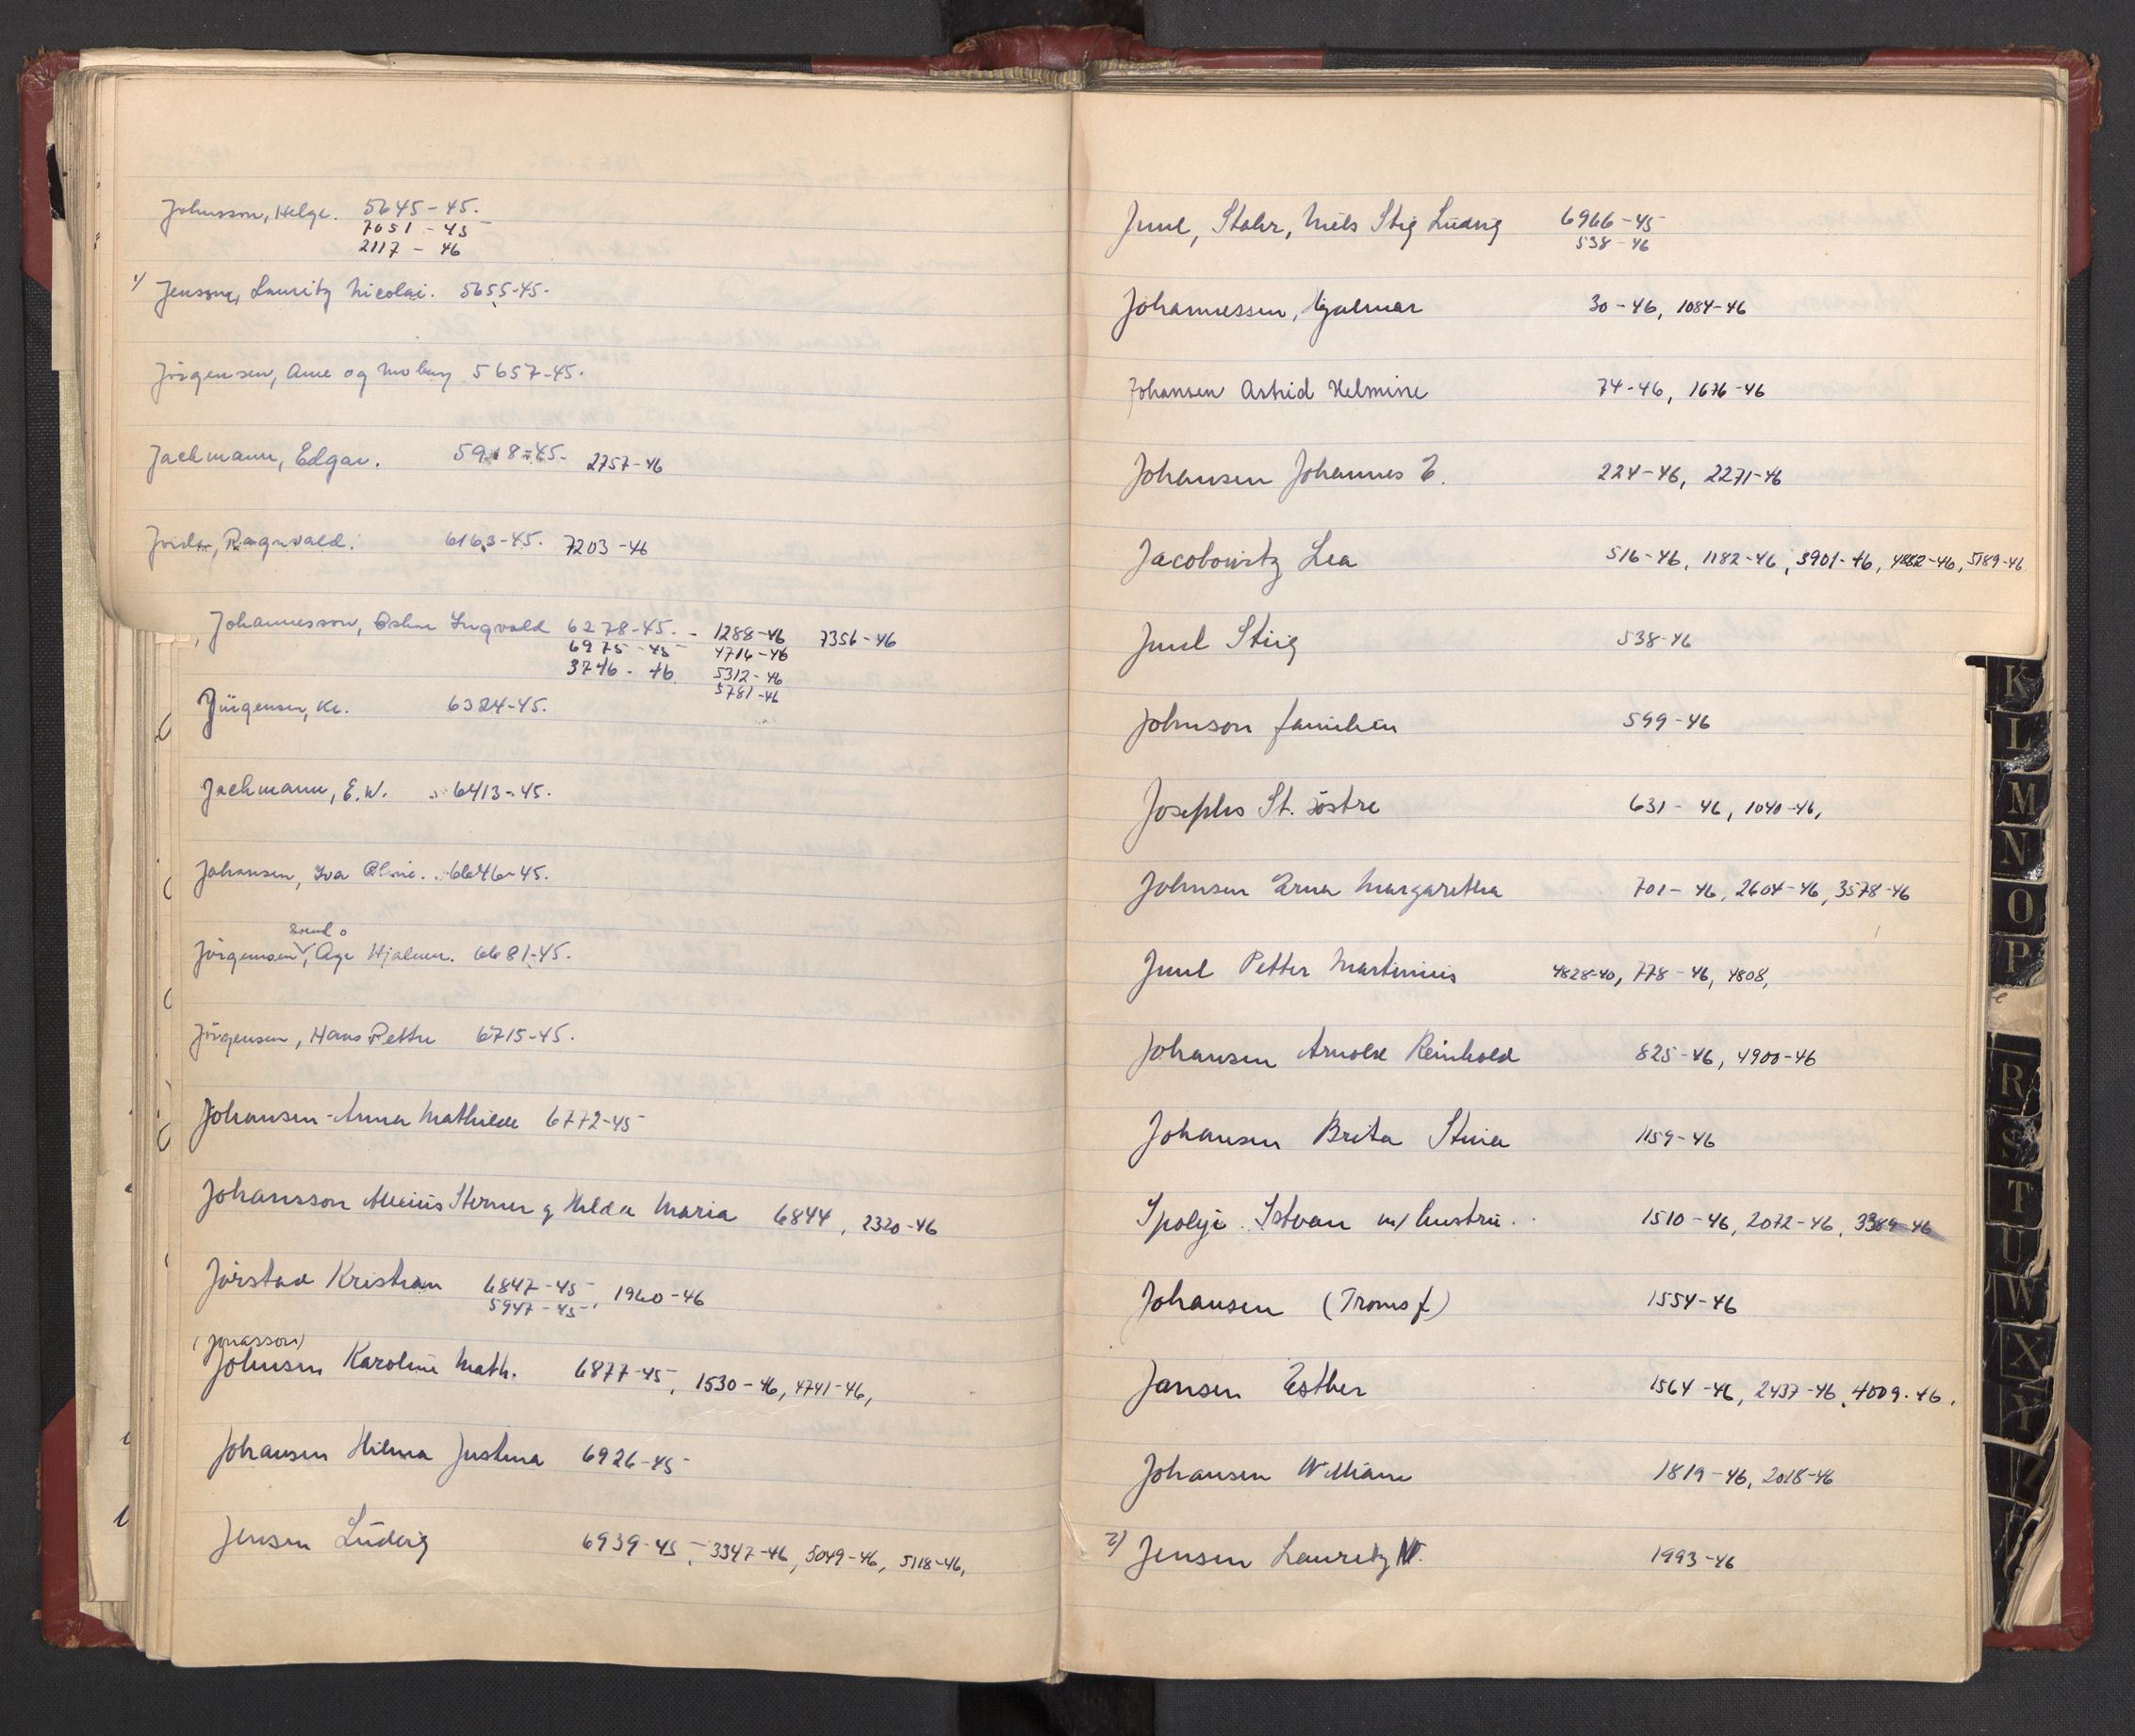 Johnsson, Helge. 5645-45.
7051-45
2117-46
1) Jensen, Lauritz Nicolai. 5655-45.
Jörgensen, Arne og 5657-45.
Jachmann, Edgar. 5918-45. 2757-46
Ragnvald. 6163-45. 7203-46
Johannesson, Oskar Ingvald 6278-45. - 1288-46 7356-46
6975-45 4716-46
3746-46 5312-46
5781-46
Jürgensen, Kr. 6324-45.
Jachmann, E.W. 6413-45.
Johansen, Iva Oline. 6646-45.
Jörgensen, Åge Hjalmar. 6681-45.
Jörgensen, Hans Petter 6715-45.
Johansen Anna Mathilde 6772-45
Johansson Sterner g Hilda Maria 6844, 2320-46
Jörstad Kristian 6847-45, 1960-46
5947-45
(Jonasson)
Johnsen Karoline Math. 6877-45, 1530-46, 4741-46,
Johansen Hilma Justina 6926-45
Jensen Lúdvig 6939-45, 3347-46, 5049-46, 5118-46,
Juul, Stahr, Niels Stig Ludvig 6966-45
538-46
Johannessen, Hjalmar 30-46, 1084-46
Johansen Astrid Helmine 74-46, 1676-46
Johansen Johannes E. 224-46, 2271-46
Jacobowitz Lea 516-46, 1182-46, 3901-46, 4882-46, 5189-46
Juul Stig 538-46
Johnson familien 599-46
Josephs St. söstre 631-46, 1040-46,
Johnsen Erna Margaretha 701-46, 2604-46, 3578-46
Juul Petter Martinius 4828-40, 778-46, 4808,
Johansen Arnold Reinhold 825-46, 4900-46
Johansen Brita Stina 1159-46
Ipolyi Istvan m/ hustru. 1510-46, 2072-46, 3389-46
Johansen (Troms f) 1554-46
Jansen Esther 1564-46, 2437-46, 4009-46.
Johansen William 1819-46, 2018-46
2) Jensen Lauritz N. 1993-46
K
L
M
N
O
P
R
S
T
U
W
X
Y
Z